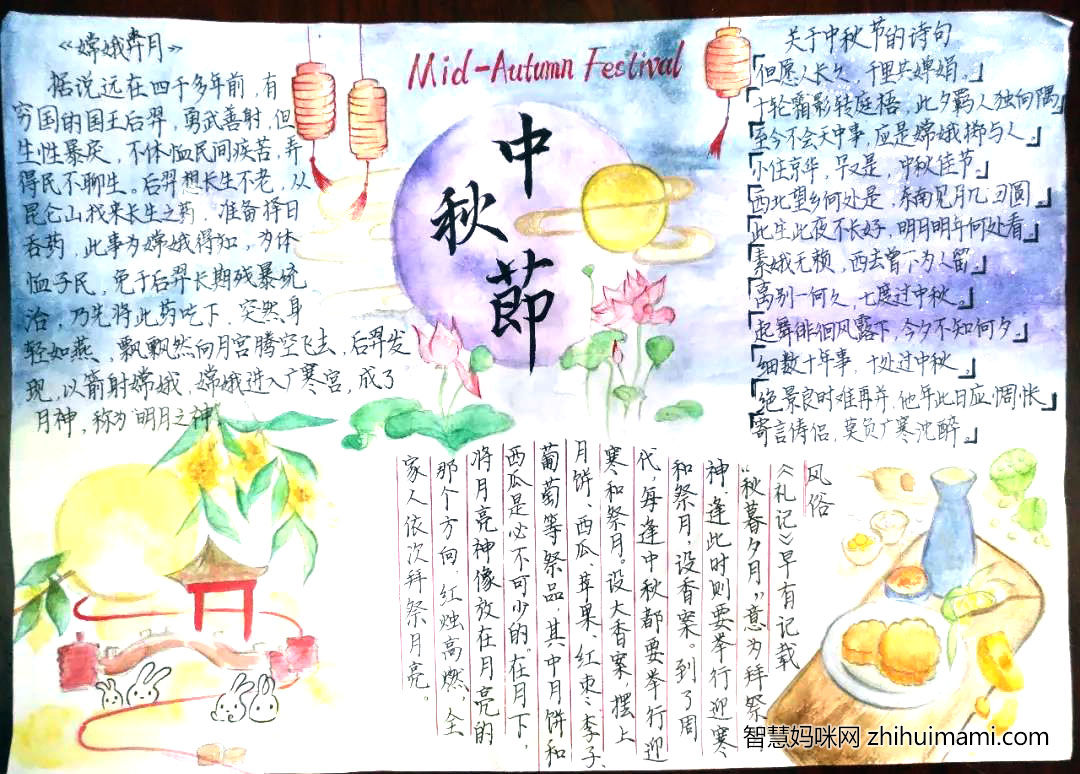 《嫦娥奔月》
据说远在四千多年前，有
穷国的国王后羿，勇武善射，但
生性暴戾，不体恤民间疾苦，弄
得民不聊生。后羿想长生不老，从
昆仑山找来长生之药，准备择日
吞药，此事为嫦娥得知，为体
恤子民，免于后羿长期残暴统
治，乃先将此药吃下，突然身
轻如燕，飘飘然向月宫腾空飞去，后羿发
现，以箭射嫦娥，嫦娥进入广寒宫，成了
月神，称为"明月之神
Mid-Autumn Festival
中秋節
关于中秋节的诗句
「但愿人长久，千里共婵娟。」
「十轮霜影转庭梧，此夕羁人独向隅」
「至今不会天中事，应是嫦娥掷与人。」
「小住京华，早又是，中秋佳节。」
「西北望乡何处是，东南见月几回圆」
「此生此夜不长好，明月明年何处看」
「素娥无赖，西去曾不为人留。」
「离别一何久，七度过中秋。」
「起舞徘徊风露下，今夕不知何夕」
「细数十年事，十处过中秋。」
「绝景良时难再并，他年此日应惆怅」
「寄言俦侣，莫负广寒沈醉。」
风俗
《礼记》早有记载
"秋暮夕月"，意为拜祭
神，逢此时则要举行迎寒
和祭月，设香案。到了周
代，每逢中秋都要举行迎
寒和祭月。设大香案，摆上
月饼、西瓜、苹果、红枣、李子、
葡萄等祭品，其中月饼和
西瓜是必不可少的。在月下，
将月亮神像放在月亮的
那个方向，红烛高燃，全
家人依次拜祭月亮。
智慧妈咪网 zhihuimami.com